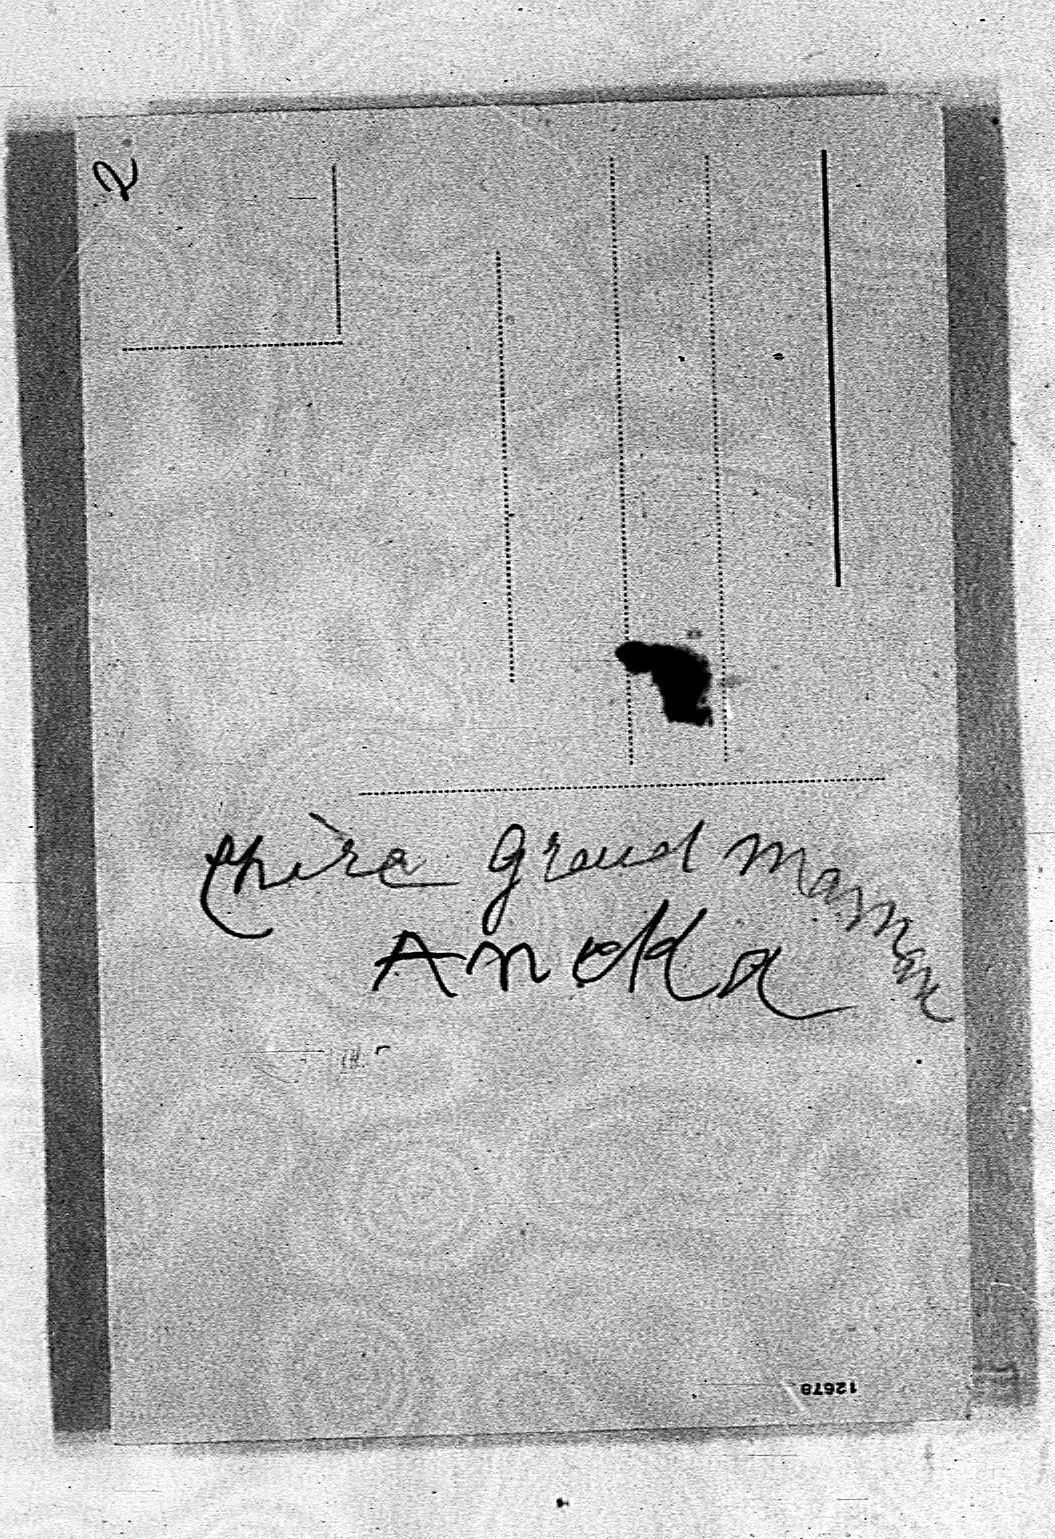 2
chère grand maman
Anokka
12678